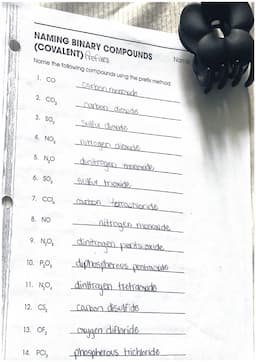 NAMING BINARY COMPOUNDS
(COVALENT) Prefixes
Name the following compounds using the prefix method.
1. CO carbon monoxide
2. CO₂ carbon dioxide
3. SO₂ sulfur dioxide
4. NO₂ nitrogen dioxide
5. N₂O dinitrogen monoxide
6. SO₃ sulfur trioxide
7. CCl₄ carbon tetrachloride
8. NO nitrogen monoxide
9. N₂O₅ dinitrogen pentoxide
10. P₂O₅ diphospherous pentoxide
11. N₂O₄ dinitrogen tetraoxide
12. CS₂ carbon disulfide
13. OF₂ oxygen difloride
14. PCl₃ phospherous trichloride